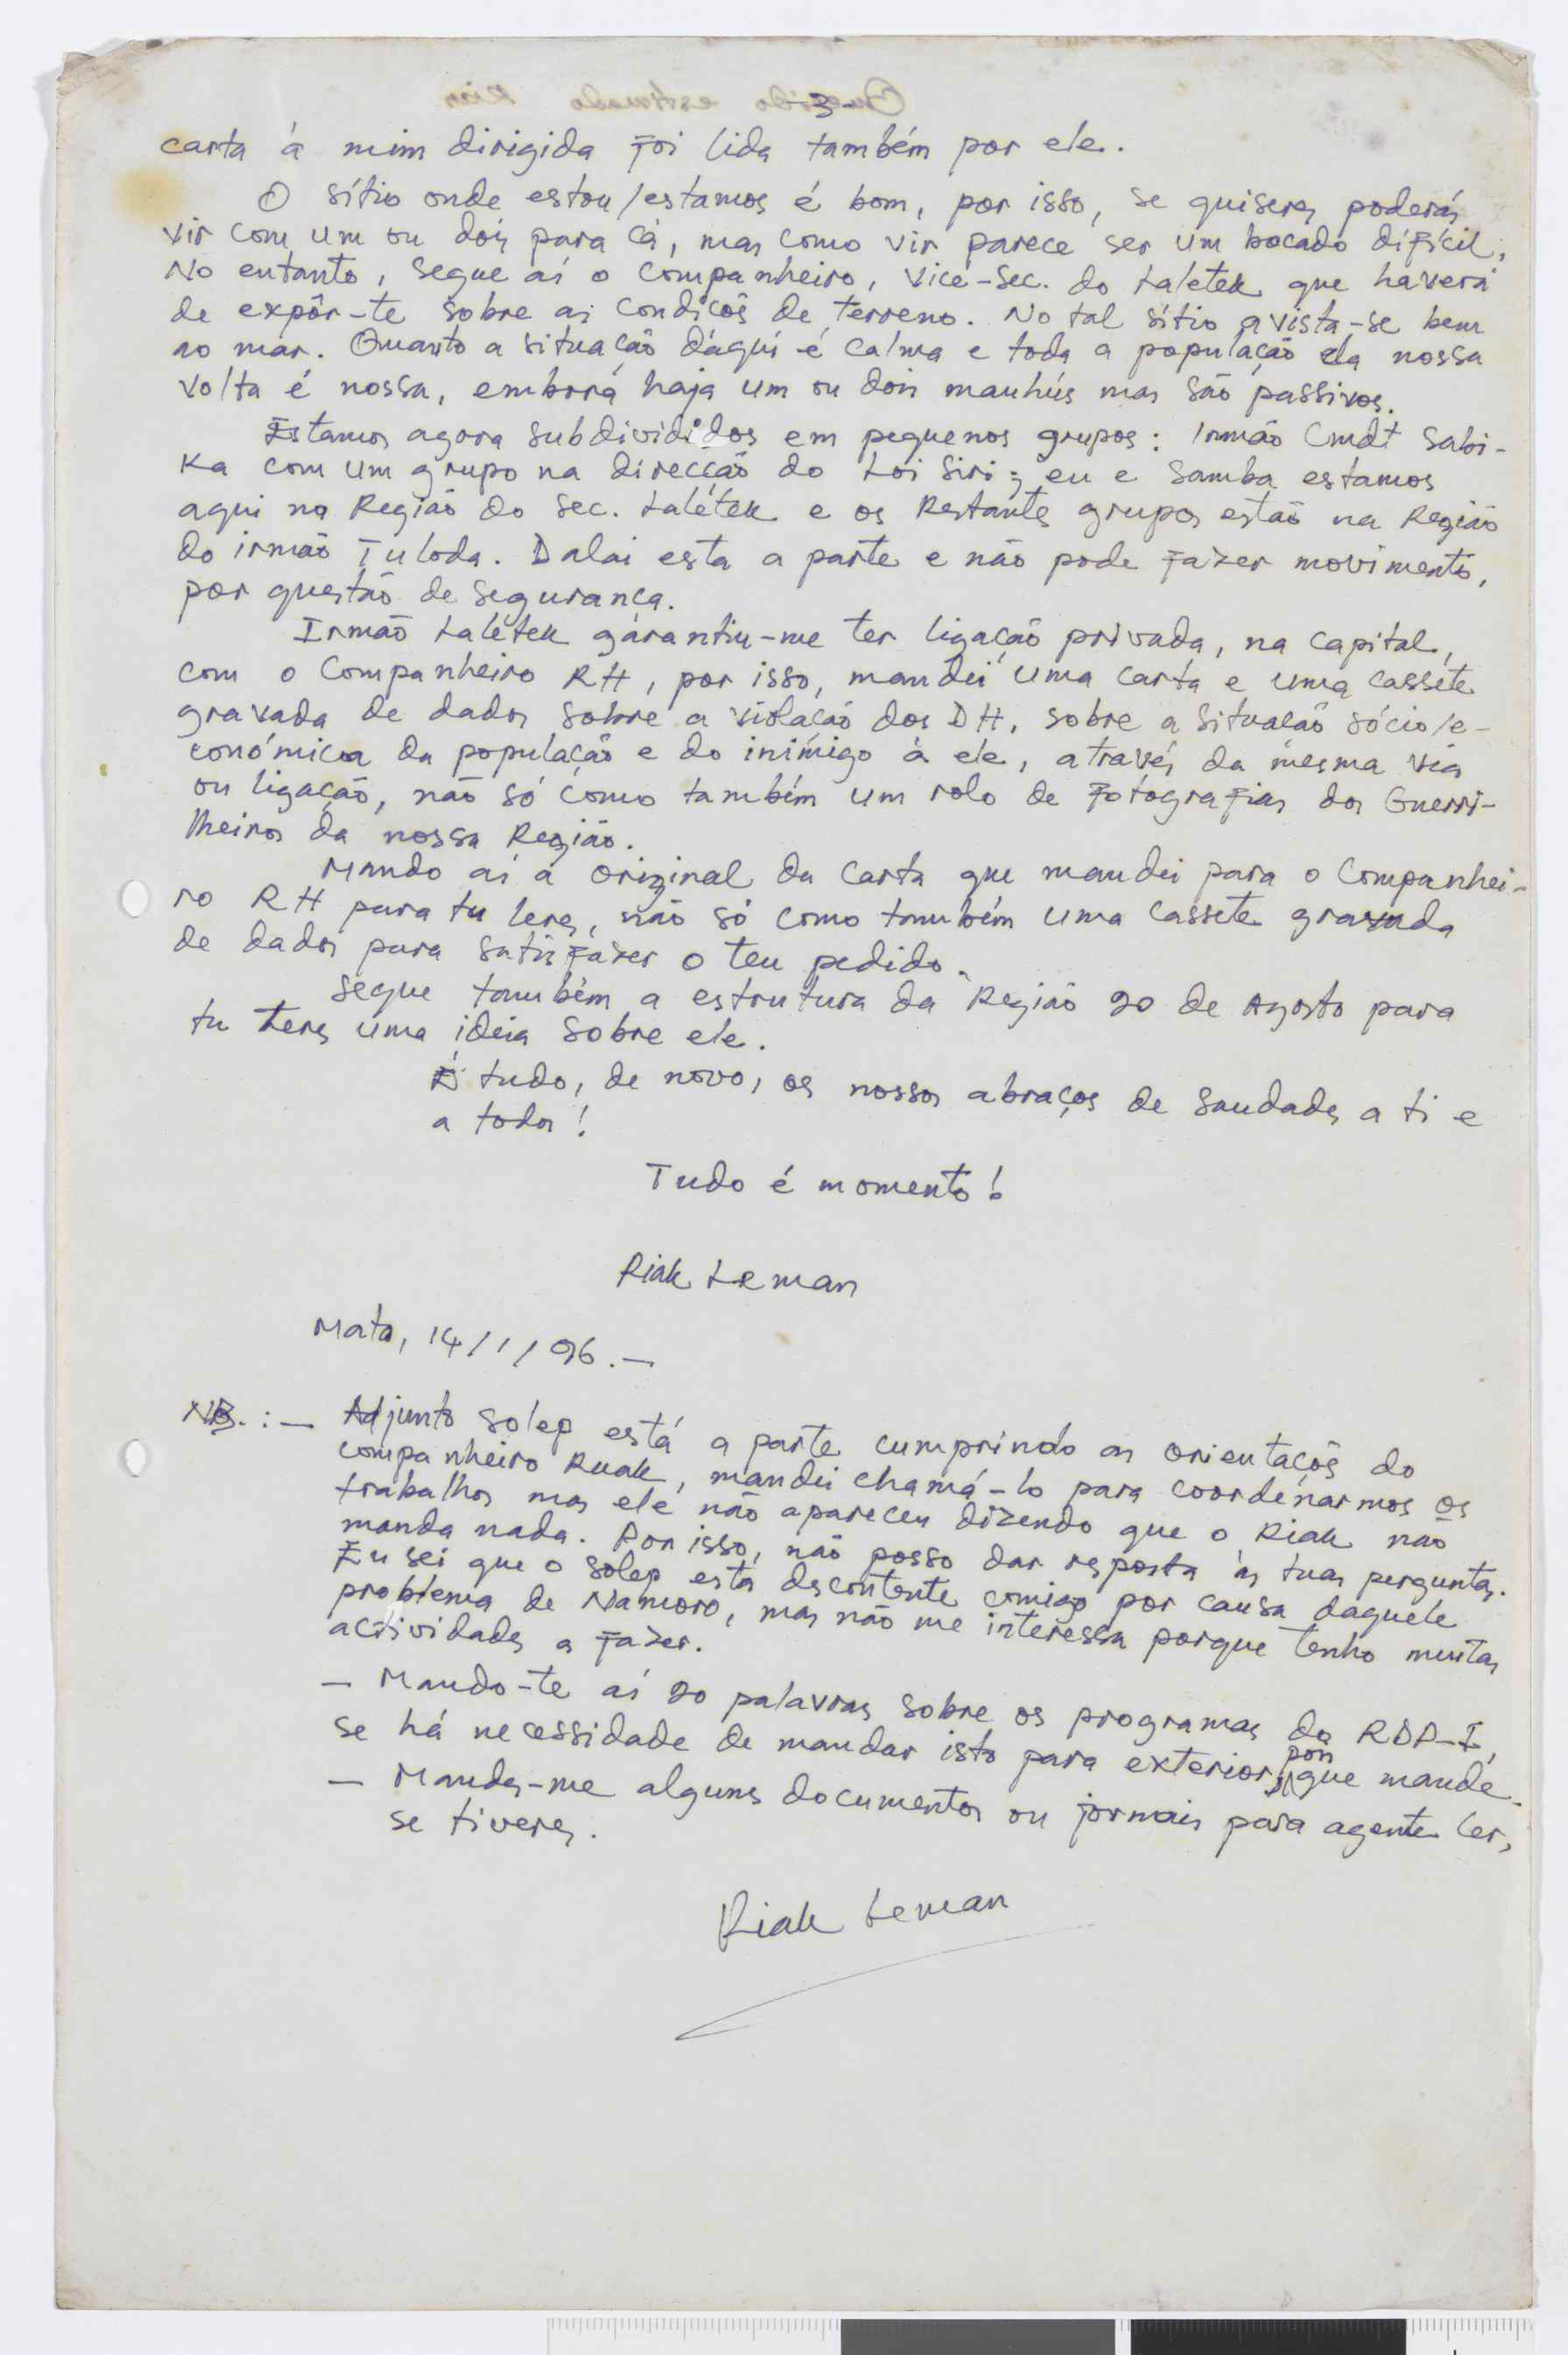 -3-
carta á mim dirigida foi lida também por ele.
O sítio onde estou/estamos é bom, por isso, se quiseres poderás
vir com um ou dois para cá, mas como vir parece ser um bocado difícil,
No entanto, segue aí o Companheiro, Vice-Sec. do Laletek que haverá
de expôr-te sobre as condicõs de terreno. No tal sítio avista-se bem
ao mar. Quanto a situação dáqui é calma e toda a população da nossa
volta é nossa, embora haja um ou dois mauhús mas são passivos.
Estamos agora subdivididos em pequenos grupos: Irmão Cmdt Sabi-
Ka com um grupo na direcção do Loi Siri; eu e Samba estamos
aqui na Região do Sec. Laletek e os Restantes grupos estão na Região
do irmão Tuloda. Dalai esta a parte e não pode fazer movimento,
por questão de segurança.
Irmão Laletek garantiu-me ter ligação privada, na capital,
com o Companheiro RH, por isso, mandei uma carta e uma cassete
gravada de dados sobre a violação dos DH, sobre a situação sócio/e-
conómica da população e do inimigo à ele, através da mesma via
ou ligação, não só como também um rolo de fotografias dos Guerri-
lheiros da nossa Região.
Mando aí a original da carta que mandei para o Companhei-
ro RH para tu leres, não só como também uma cassete gravada
de dados para satisfazer o teu pedido.
Segue também a estrutura da Região 20 de Agosto para
tu teres uma ideia sobre ele.
É tudo, de novo, os nossos abraços de saudades a ti e
a todos!
Tudo é momento!
Riak Leman
Mato, 14/1/96.-
NB.:- Adjunto Solep está a parte cumprindo as orientaçõs do
companheiro Ruak, mandei chamá-lo para coordenarmos os
trabalhos mas ele não apareceu dizendo que o Riak não
manda nada. Por isso, não posso dar resposta às tuas perguntas.
Eu sei que o Solep está descontente comigo por causa daquele
problema de Namoro, mas não me interessa porque tenho muitas
actividades a fazer.
- Mando-te aí 20 palavras sobre os programas da RDP-I,
se há necessidade de mandar isto para exterior, pois que mande.
- Mandes-me alguns documentos ou jornais para agente ler,
se tiveres.
Riak Leman